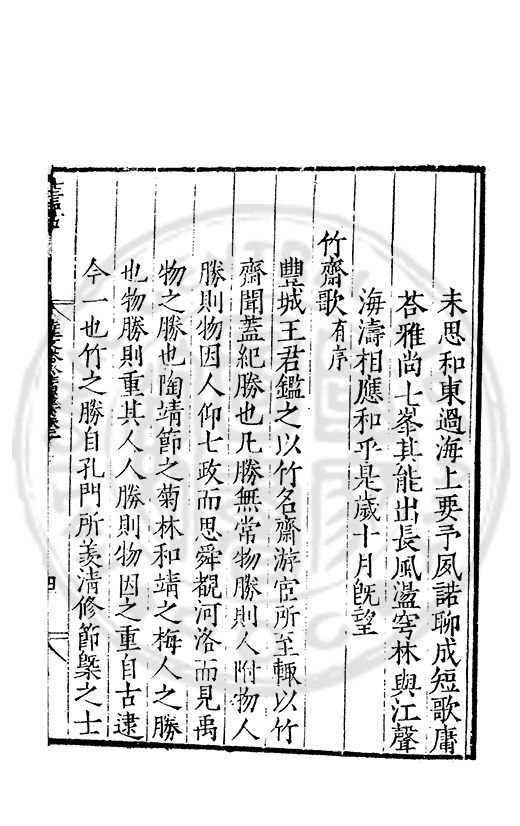 未思和東過海上要予夙諾聊成短歌庸
荅雅尚七峯其能出長風盪穹林與江聲
海濤相應和乎是歲十月旣望
竹齋歌有序
豐城王君鑑之以竹名齋游宦所至輒以竹
齋聞蓋紀勝也凡勝無常物勝則人附物人
勝則物因人仰七政而思舜覩河洛而見禹
物之勝也陶靖節之菊林和靖之梅人之勝
也物勝則重其人人勝則物因之重自古逮
今一也竹之勝自孔門所羨清修節槩之士
四